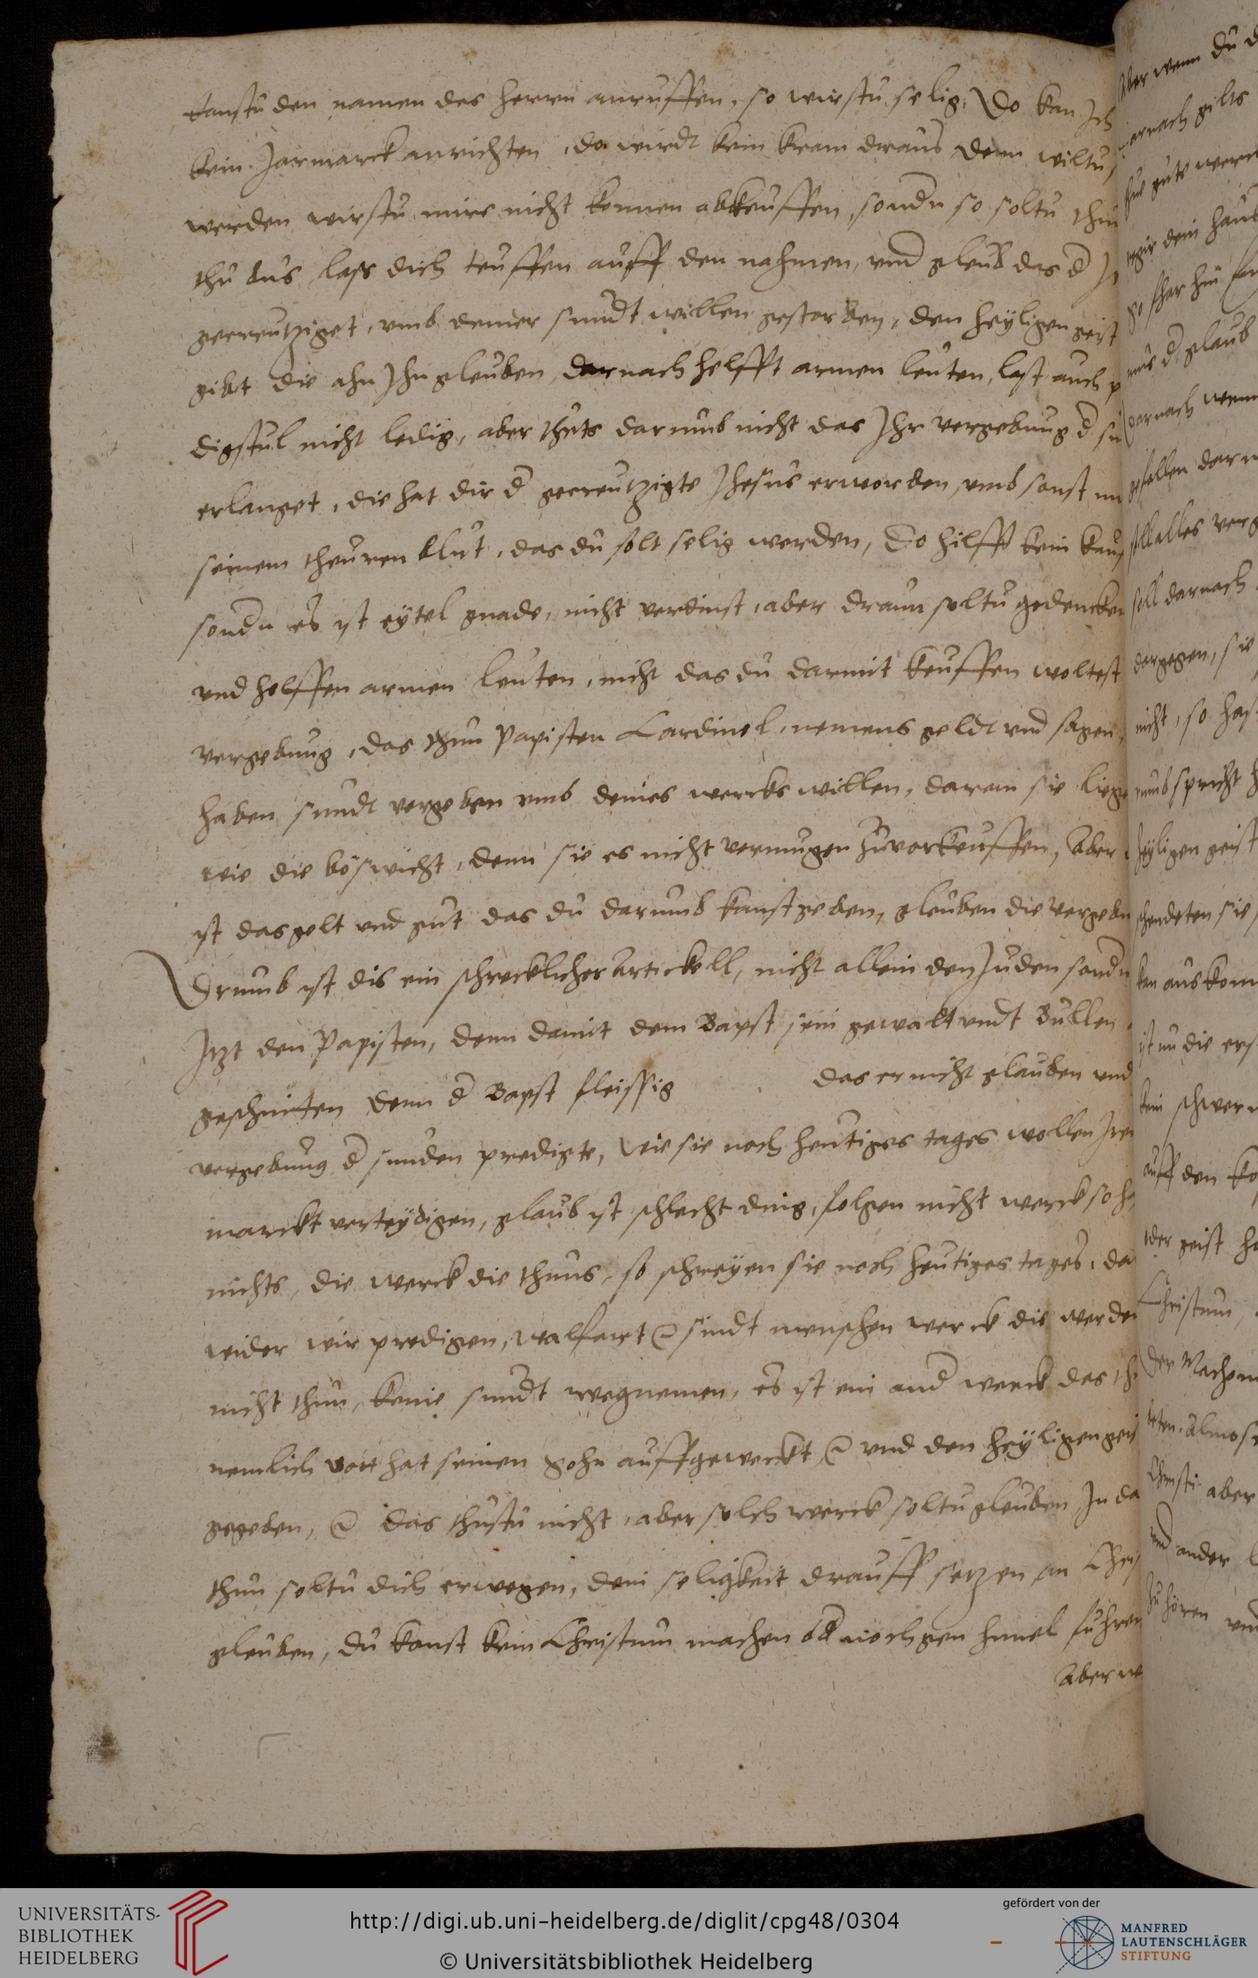 kanstu den namen des herrn anruffen, so wirstu selig, Do kan Ich
kein Jarmarck anrichten, do wirdt kein kram draus denn wiltu
werden wirstu mirs nicht konnen abkeuffen, sondn so soltu thun
thu bus, lass dich teuffen auff den nahmen, und gleub das d
gecreutziget, umb deiner sundt willen gestorben, den heyligen geist
gibt die ahn Ihn gleuben, darnach helfft armen leuten, last auch p
digstul nicht ledig, aber thuts darumb nicht das Ihr vergebung d su
erlanget, die hat dir d gecreutzigte Ihesus erworben, umb sonst
seinem theuren blut, das du solt selig werden, Do hilfft kein kauf
sondn es ist eytel gnade, nicht verdinst, aber draun soltu gedencken
und helffen armen leuten, nicht das du darmit keuffen woltest
vergebung, das thun Papisten Cardinel, nemens geldt und sagen,
haben sundt vergeben umb deines wercks willen, darein sie liege
wie die böswicht, denn sie es nicht vermugen zuvorkeuffen, Aber
ist das gelt und gut das du darumb kanst geben, gleuben die vergebu
Drumb ist dis ein schrecklicher artickell, nicht allein den Juden sondn
Itzt den Papisten, denn damit dem Bapst sein gewalt undt Bullen
geschnitten denn d Bapst fleissig das er nicht glauben und
vergebung d sunden predigte, wie sie noch heutiges tages wollen Iren
marckt verteydigen, glaub ist schlecht ding, folgen nicht werck so h
nichts, die werck die thuns, so schreyen sie noch heutiges tages, da
wider wir predigen, walfart sindt menschen werck die werden
nicht thun, keine sundt wegnemen, es ist ein and werck das th
nemlich Gott hat seinen Sohn aufferweckt und den heyligen geis
gegeben, das thustu nicht, aber solch werck soltu gleuben, In da
thun soltu dich erwegen, dein seligkeit drauff setzen, an Chris
gleuben, du kanst kein Christum machen od noch gen himel fuhren
Aber w
Aber wenn du d
darnach gilts
thu gute werck
regir dein haus
so fhar hin
uns d glaub
Darnach wenn
gefallen der
soll alles verg
soll darnach
dargegen, sie
nicht, so has
umb spricht
heyligen geist
schendeten sie
ken aus kom
ist nu die ers
kein schwer
auff den ko
der geist ha
Christum,
der Machom
beten, Almose
Christi aber
und ander
zu hören und
UNIVERSITÄTS-
BIBLIOTHEK
HEIDELBERG
http://digi.ub.uni-heidelberg.de/diglit/cpg48/0304
© Universitätsbibliothek Heidelberg
gefördert von der
MANFRED
LAUTENSCHLÄGER
STIFTUNG